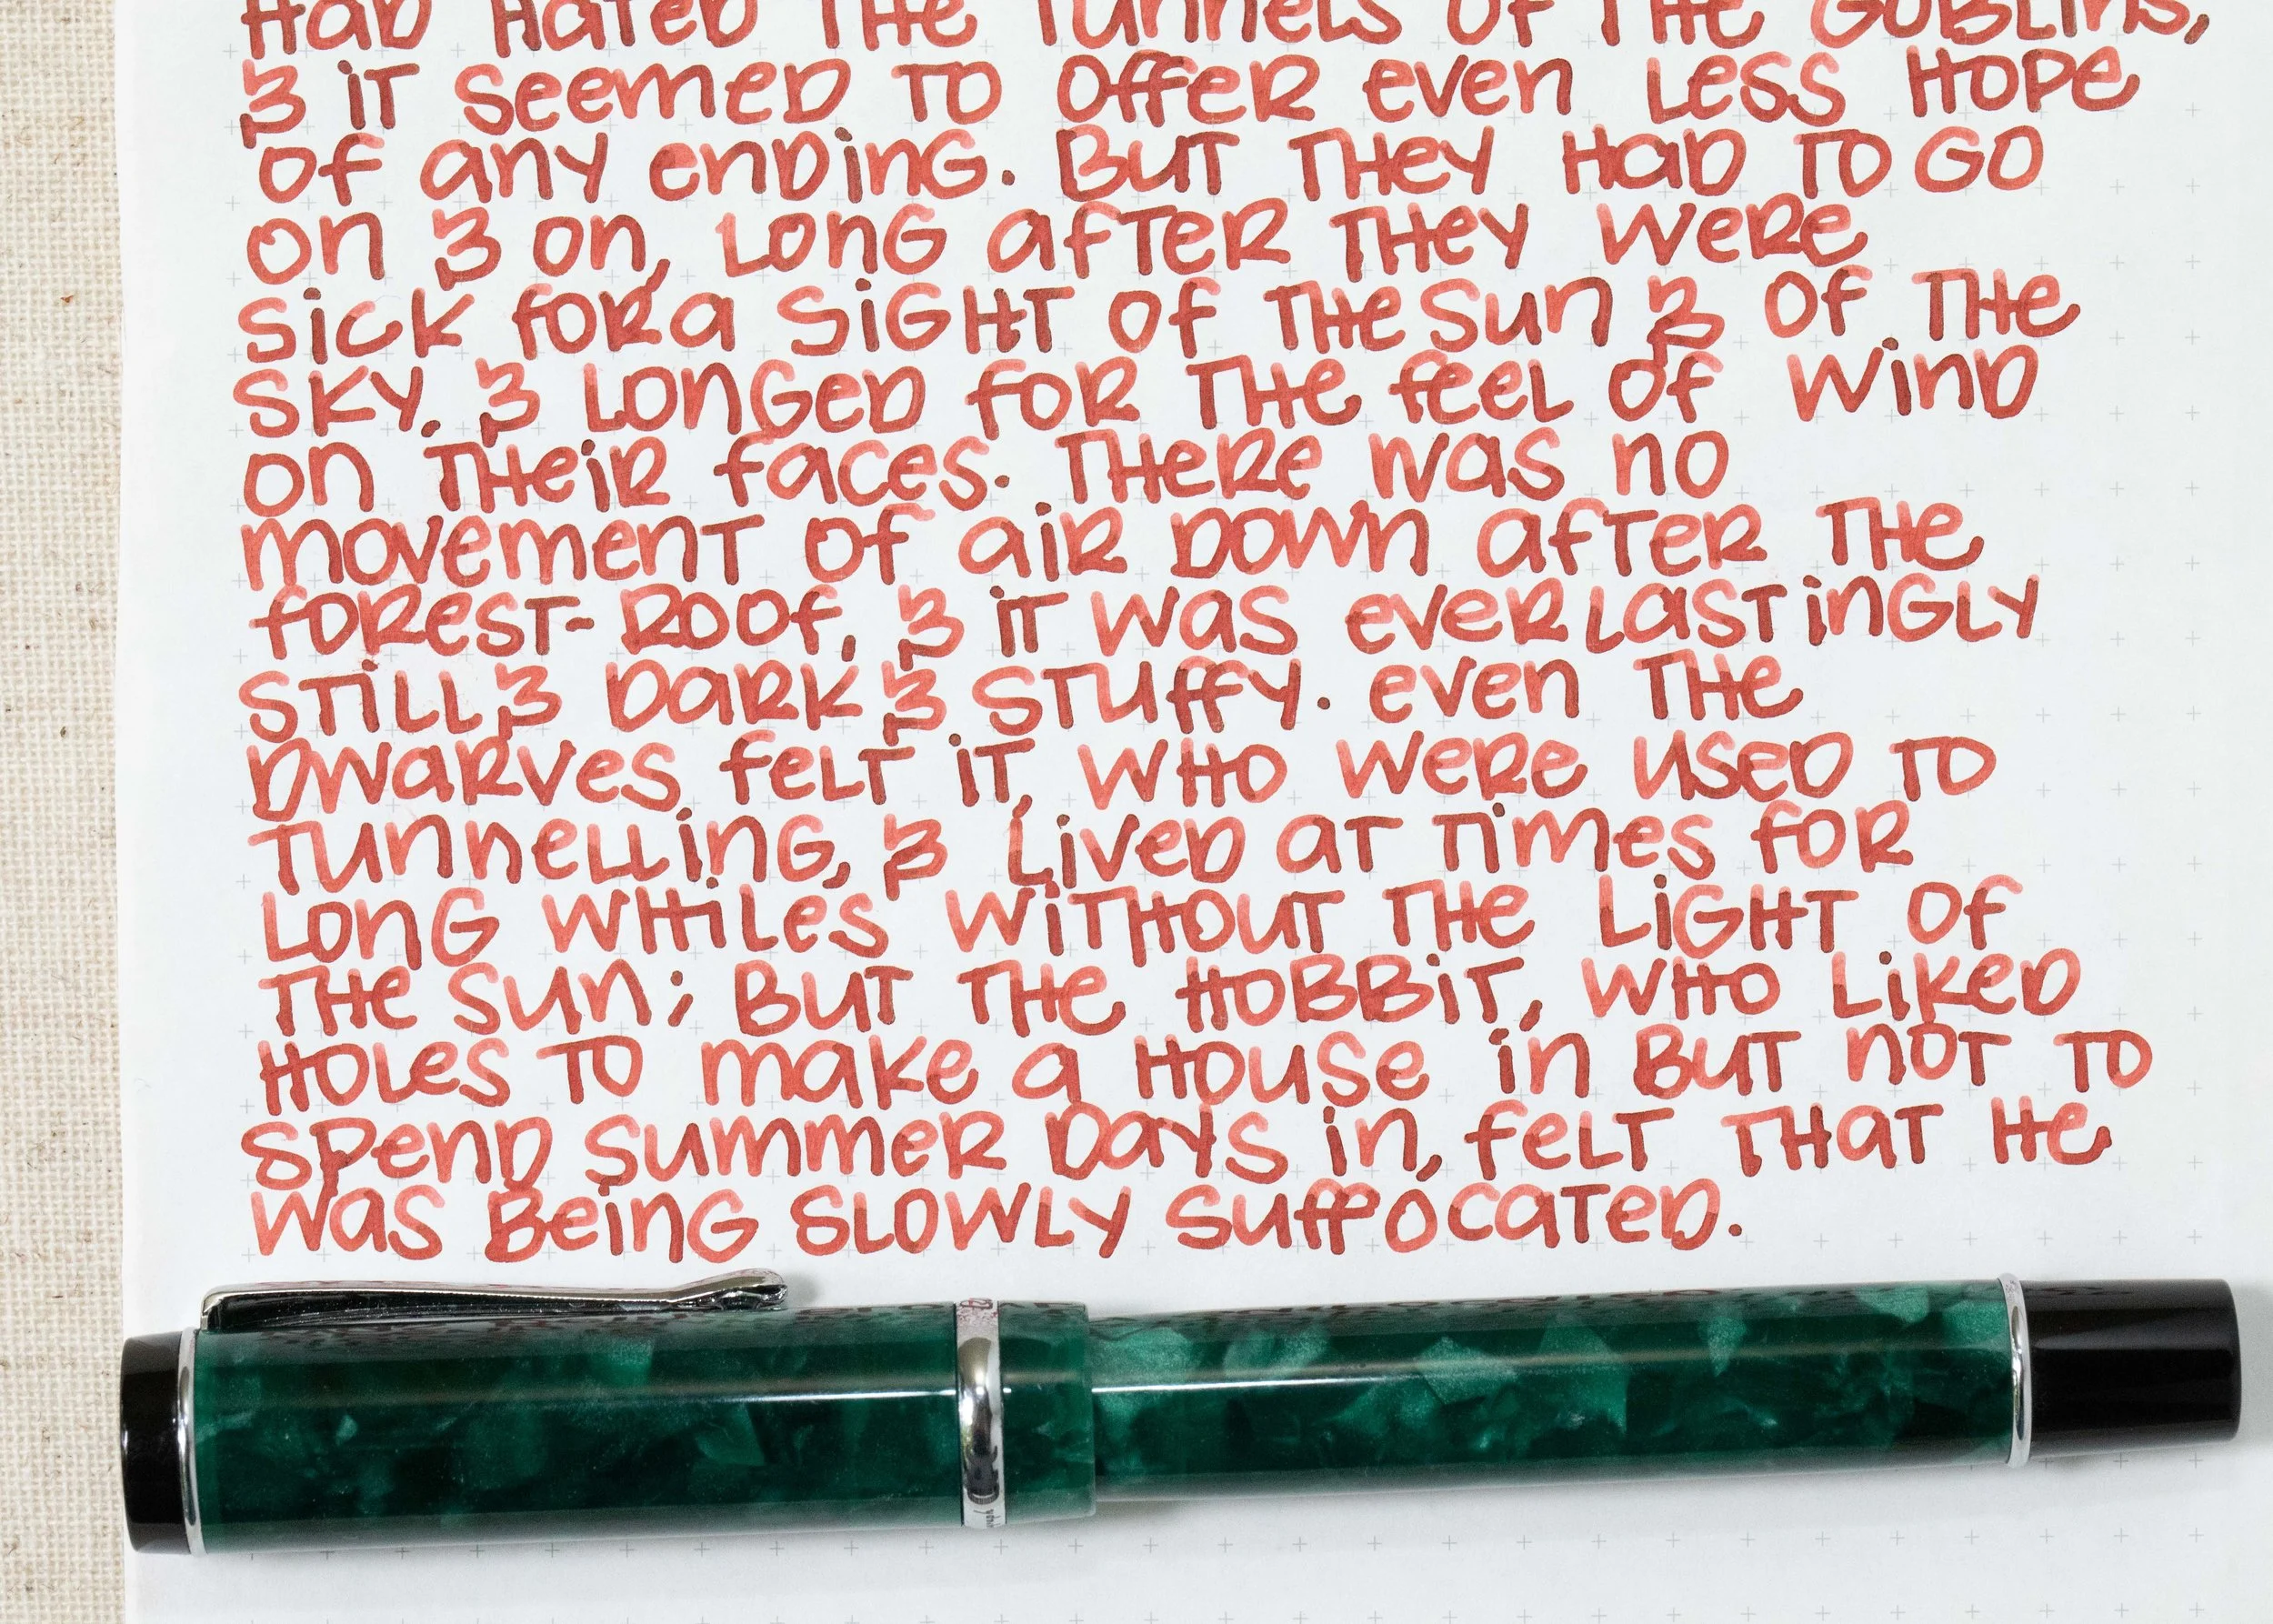 Had hated the tunnels of the goblins,
& it seemed to offer even less hope
of any ending. But they had to go
on & on, long after they were
sick for a sight of the sun & of the
sky, & longed for the feel of wind
on their faces. There was no
movement of air down after the
forest-roof, & it was everlastingly
still & dark & stuffy. Even the
dwarves felt it, who were used to
tunnelling, & lived at times for
long whiles without the light of
the sun; but the hobbit, who liked
holes to make a house in but not to
spend summer days in, felt that he
was being slowly suffocated.